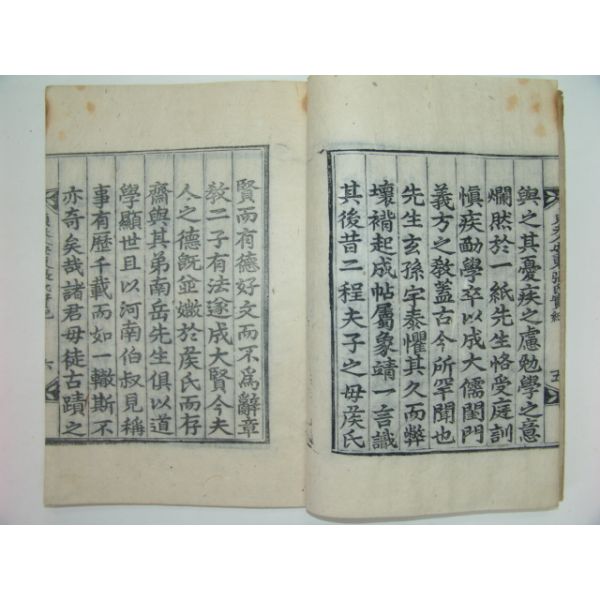 與之其憂疾之慮勉學之意
爛然於一紙先生恪受庭訓
愼疾勤學卒以成大儒閨門
義方之敎蓋古今所罕聞也
先生玄孫宇泰懼其久而弊
壞褙起成帖屬象靖一言識
其後昔二程夫子之母侯氏
賢而有德好文而不爲辭章
敎二子有法遂成大賢今夫
人之德旣並媺於侯氏而存
齋與其弟南岳先生俱以道
學顯世且以河南伯叔見稱
事有歷千載而如一轍斯不
亦奇矣哉諸君毋徒古蹟之
五
六